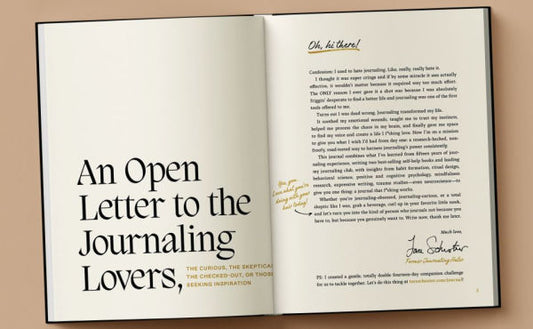 An Open
Letter to the
Journaling
Lovers,
THE CURIOUS, THE SKEPTICAL,
THE CHECKED-OUT, OR THOSE
SEEKING INSPIRATION
Oh, hi there!
Confession: I used to hate journaling. Like, really, really hate it.
I thought it was super cringe and if by some miracle it was actually
effective, it wouldn't matter because it required way too much effort.
The ONLY reason I ever gave it a shot was because I was absolutely
friggin' desperate to find a better life and journaling was one of the first
tools offered to me.
Turns out I was dead wrong. Journaling transformed my life.
It soothed my emotional wounds, taught me to trust my instincts,
helped me process the chaos in my brain, and finally gave me space
to find my voice and create a life I f*cking love. Now I'm on a mission
to give you what I wish I'd had from day one: a research-backed, non-
froofy, road-tested way to harness journaling's power consistently.
This journal combines what I've learned from fifteen years of jour-
naling experience, writing two best-selling self-help books and leading
my journaling club, with insights from habit formation, ritual design,
behavioral science, positive and cognitive psychology, mindfulness
research, expressive writing, trauma studies—even neuroscience—to
give you one thing: a journal that f*cking works.
Whether you're journaling-obsessed, journaling-curious, or a total
skeptic like I was, grab a beverage, curl up in your favorite little nook,
and let's turn you into the kind of person who journals not because you
have to, but because you genuinely want to. Write now, thank me later.
Much love,
Former Journaling Hater
PS: I created a gentle, totally doable fourteen-day companion challenge
for us to tackle together. Let's do this thing at